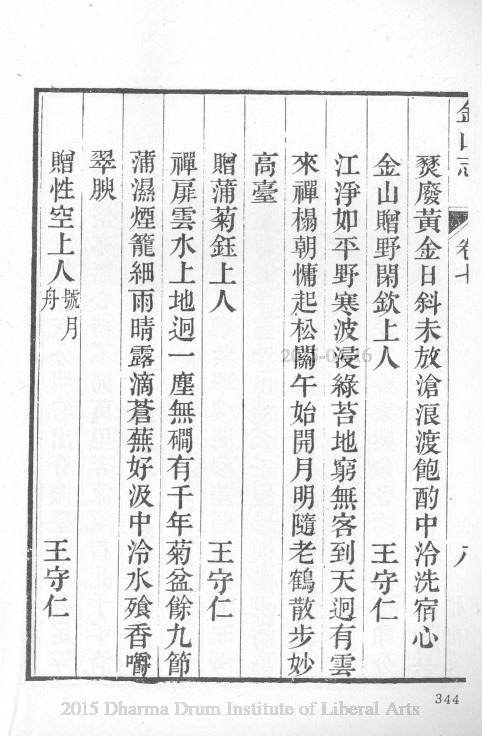 金山志
卷七
八
燹廢黃金日斜未放滄浪渡飽酌中泠洗宿心
金山贈野閑欽上人 王守仁
江淨如平野寒波浸綠苔地窮無客到天迥有雲
來禪榻朝慵起松關午始開月明隨老鶴散步妙
高臺
贈蒲菊鈺上人 王守仁
禪扉雲水上地迥一塵無磵有千年菊盆餘九節
蒲濕煙籠細雨晴露滴蒼蕪好汲中泠水飱香嚼
翠腴
贈性空上人號月舟 王守仁
344
2015 Dharma Drum Institute of Liberal Arts